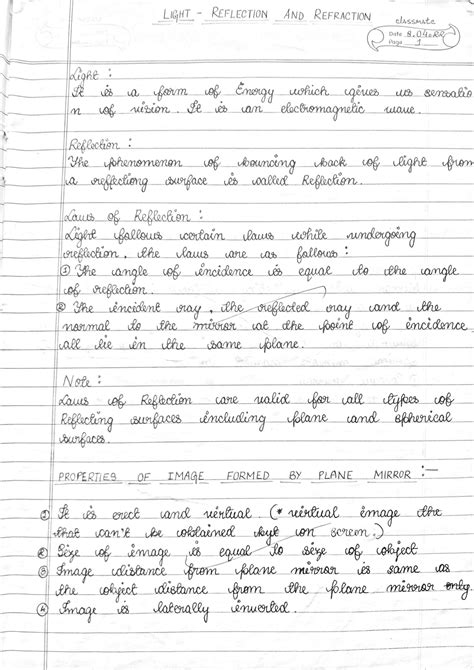 LIGHT - REFLECTION AND REFRACTION
classmate
Date 8.04.22
Page 1
Light :
It is a form of Energy which gives us sensatio
n of vision. It is an electromagnetic wave.
Reflection :
The phenomenon of bouncing back of light from
a reflecting surface is called Reflection.
Laws of Reflection :
Light follows certain laws while undergoing
reflection. the laws are as follows :
① The angle of incidence is equal to the angle
of reflection.
② The incident ray, the reflected ray and the
normal to the mirror at the point of incidence
all lie in the same plane.
Note :
Laws of Reflection are valid for all types of
Reflecting surfaces including plane and spherical
surfaces.
PROPERTIES OF IMAGE FORMED BY PLANE MIRROR :-
① It is erect and virtual. (* virtual image the
that can't be obtained on screen.)
② Size of image is equal to size of object
③ Image distance from plane mirror is same as
the object distance from the plane mirror only.
④ Image is laterally inverted.